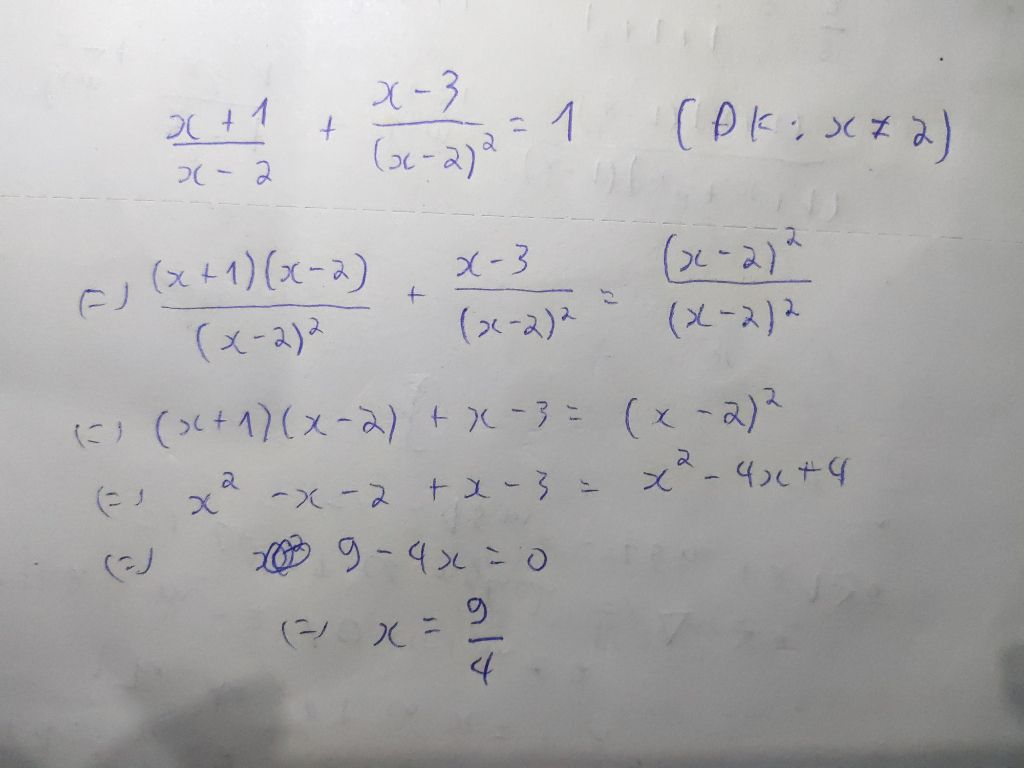 (x+1)/(x-2) + (x-3)/(x-2)² = 1 (ĐK: x ≠ 2)
(=) (x+1)(x-2)/(x-2)² + (x-3)/(x-2)² = (x-2)²/(x-2)²
(=) (x+1)(x-2) + x-3 = (x-2)²
(=) x² -x-2 +x-3 = x² -4x+4
(=) 9-4x=0
(=) x = 9/4